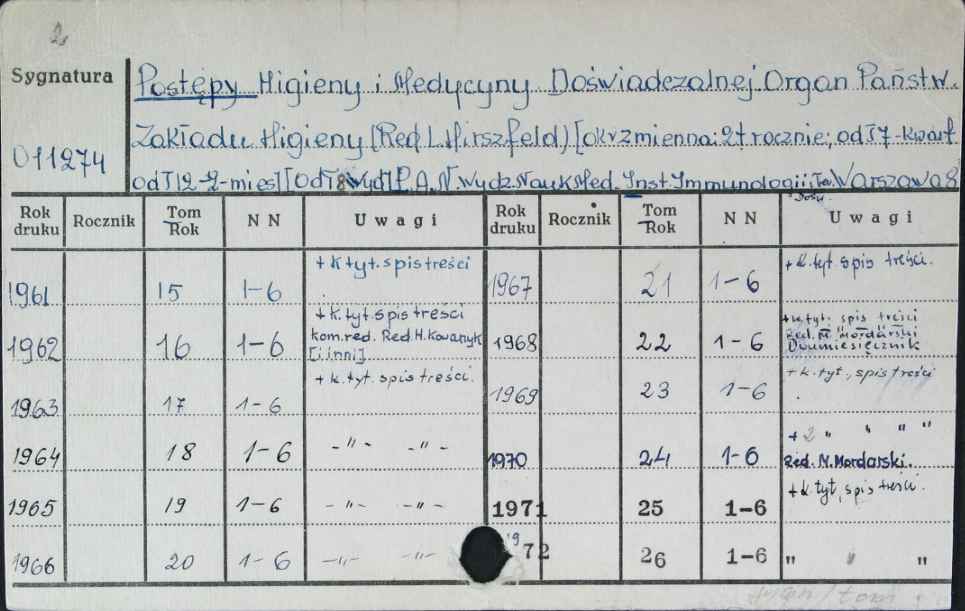 2
Sygnatura
Postępy Higieny i Medycyny Doświadczalnej. Organ Państw.
011274
Zakładu Higieny (Red L. Hirszfeld) [okr zmienna: 2+ rocznie, od T 7-kwart
od T 12-2-mies] [od T 8 wyd] P.A.N. Wydz. Nauk Med. Inst. Immunologii; Warszawa 8°
Rok druku Rocznik Tom Rok N N Uwagi Rok druku Rocznik Tom Rok N N Uwagi
1961 15 1-6 + k tyt. spis treści 1967 21 1-6 + k. tyt. spis treści.
1962 16 1-6 + k. tyt. spis treści kom. red. Red. H. Kowarzyk [i inni] 1968 22 1-6 + k. tyt. spis treści Red. M. Mordarski Dwumiesięcznik
1963 17 1-6 + k. tyt. spis treści. 1969 23 1-6 + k. tyt., spis treści
1964 18 1-6 -"- -"- 1970 24 1-6 + 2 " " " " Red. M. Mordarski.
1965 19 1-6 -"- -"- 1971 25 1-6 + k tyt, spis treści.
1966 20 1-6 -"- -"- 1972 26 1-6 " " "